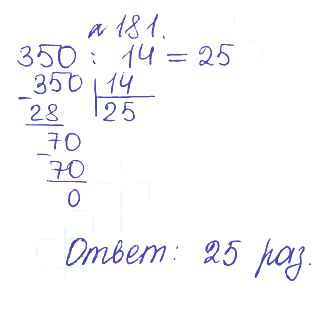 № 181.
350 : 14 = 25
350 | 14
- 28 | 25
70
- 70
0
Ответ: 25 раз.